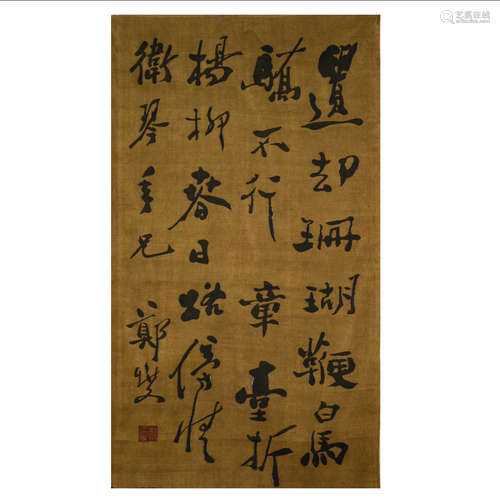 遺却珊瑚鞭白馬
驕不行章臺折
楊柳春日路傍情
衛琴年兄
鄭燮
艺狐在线